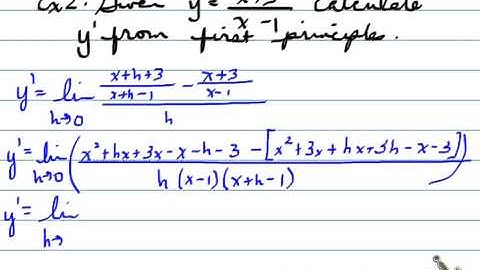 Ex2: Given y = (x+3)/(x-1) calculate
y' from first principle.
y' = lim h→0 ((x+h+3)/(x+h-1) - (x+3)/(x-1))/h
y' = lim h→0 ((x²+hx+3x-x-h-3-[x²+3x+hx+3h-x-3])/(h(x-1)(x+h-1)))
y' = lim h→